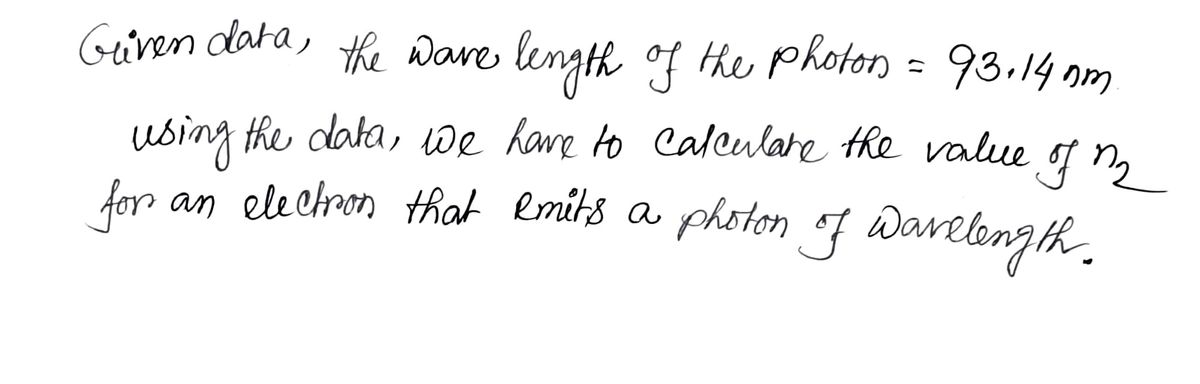 Given data, the wave length of the photon = 93.14 nm
using the data, we have to calculate the value of n₂
for an electron that emits a photon of wavelength.